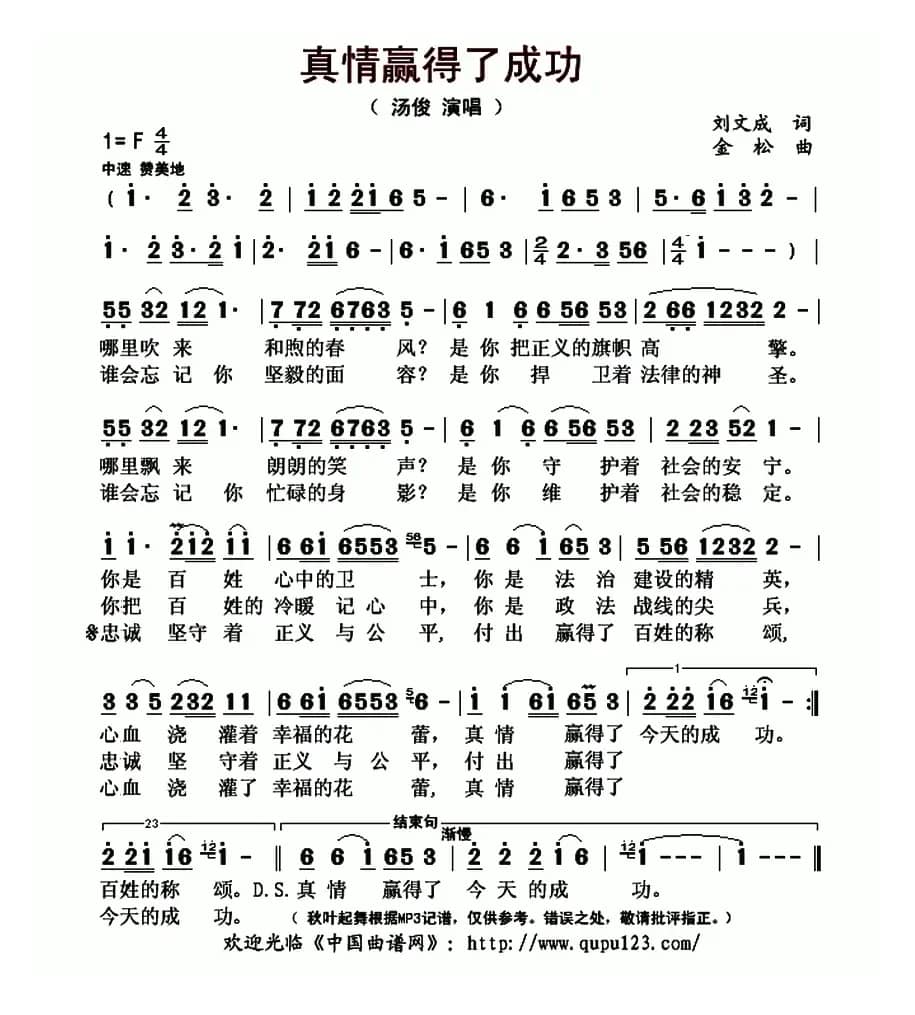 真情赢得了成功
（ 汤俊 演唱 ）
刘文成 词
1= F 4/4
金 松 曲
中速 赞美地
( i· 2 3· 2 | i 2 2i 6 5 - | 6· i 6 5 3 | 5· 6 i 3 2 - |
i· 2 3· 2 i | 2· 2i 6 - | 6· i 65 3 | 2/4 2· 3 56 | 4/4 i - - - ) |
55 32 12 1· | 7 72 6763 5 - | 6 1 6 6 56 53 | 2 66 1232 2 - |
哪里吹 来 和煦的春 风？ 是 你 把正义的旗帜 高 擎。
谁会忘 记 你 坚毅的面 容？ 是 你 捍 卫着 法律的神 圣。
55 32 12 1· | 7 72 6763 5 - | 6 1 6 6 56 53 | 2 23 52 1 - |
哪里飘 来 朗朗的笑 声？ 是 你 守 护着 社会的安 宁。
谁会忘 记 你 忙碌的身 影？ 是 你 维 护着 社会的稳 定。
i i· 2i2 ii | 6 6i 6553 56 5 - | 6 6 i 65 3 | 5 56 1232 2 - |
你是 百 姓 心中的卫 士， 你 是 法 治 建设的精 英，
你把 百 姓的 冷暖 记 心 中， 你 是 政 法 战线的尖 兵，
※忠诚 坚守 着 正义 与 公 平， 付 出 赢得了 百姓的称 颂，
1
3 3 5 232 11 | 6 6i 6553 5 6 - | i i 6i 65 3 | 2 22 i6 12 i - :‖
心血 浇 灌着 幸福的花 蕾， 真 情 赢得了 今天的成 功。
忠诚 坚 守着 正义 与 公 平， 付 出 赢得了
心血 浇 灌了 幸福的花 蕾， 真 情 赢得了
23 结束句
渐慢
2 2i i6 12 i - ‖ 6 6 i 65 3 | 2 2 2 i 6 | 12 i - - - | i - - - ‖
百姓的称 颂。D.S.真 情 赢得了 今 天 的成 功。
今天的成 功。 （ 秋叶起舞根据MP3记谱，仅供参考。错误之处，敬请批评指正。）
欢迎光临《中国曲谱网》：http://www.qupu123.com/